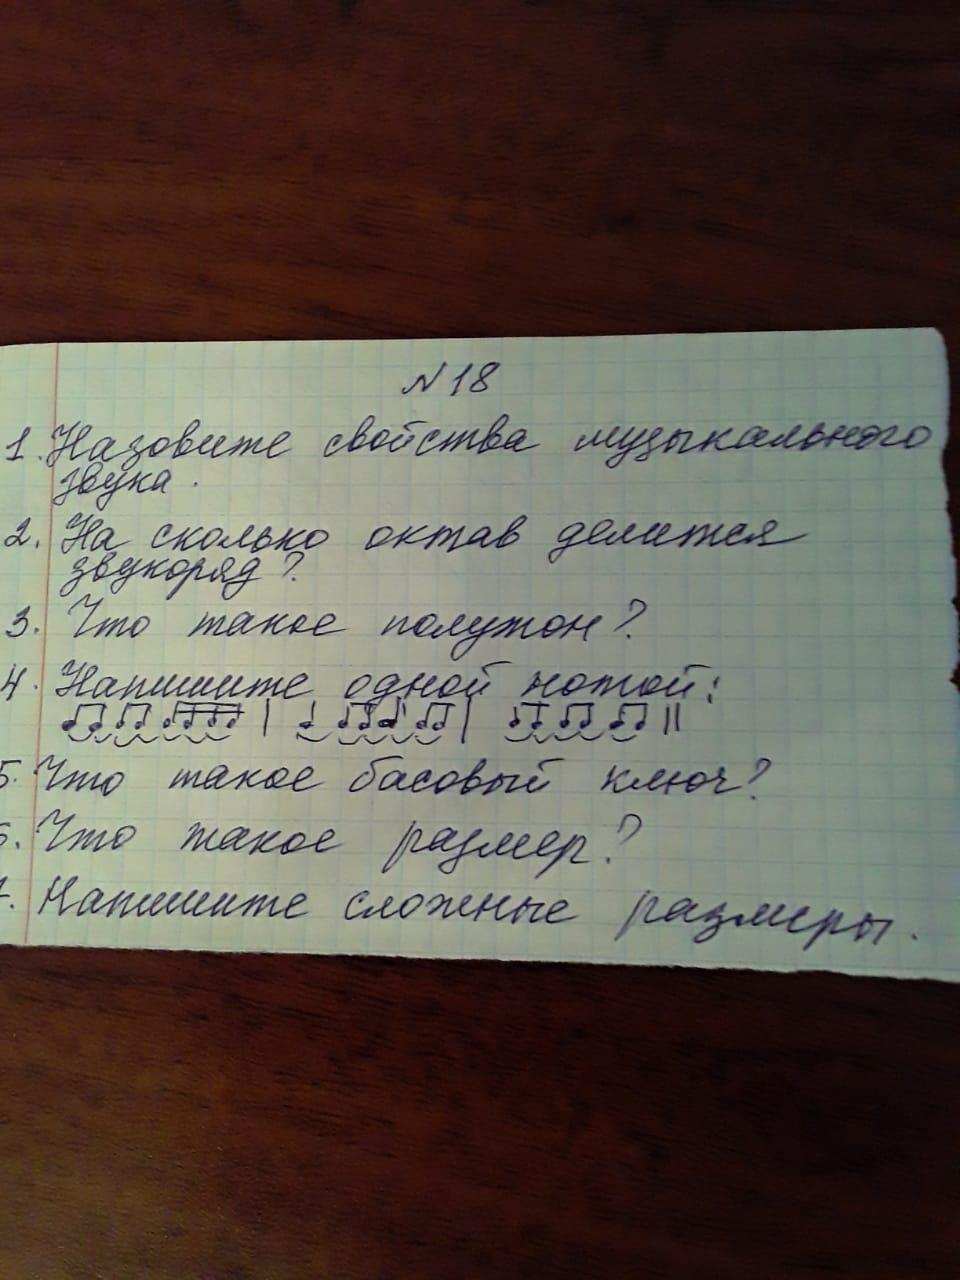 №18
1. Назовите свойства музыкального
звука.
2. На сколько октав делится
звукоряд?
3. Что такое полутон?
4. Напишите одной нотой:
5. Что такое басовый ключ?
6. Что такое размер?
7. Напишите сложные размеры.